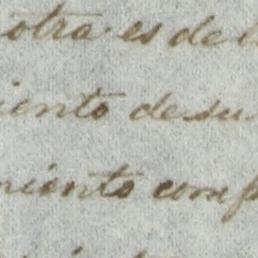 otra es de l
iento de su
niento comp